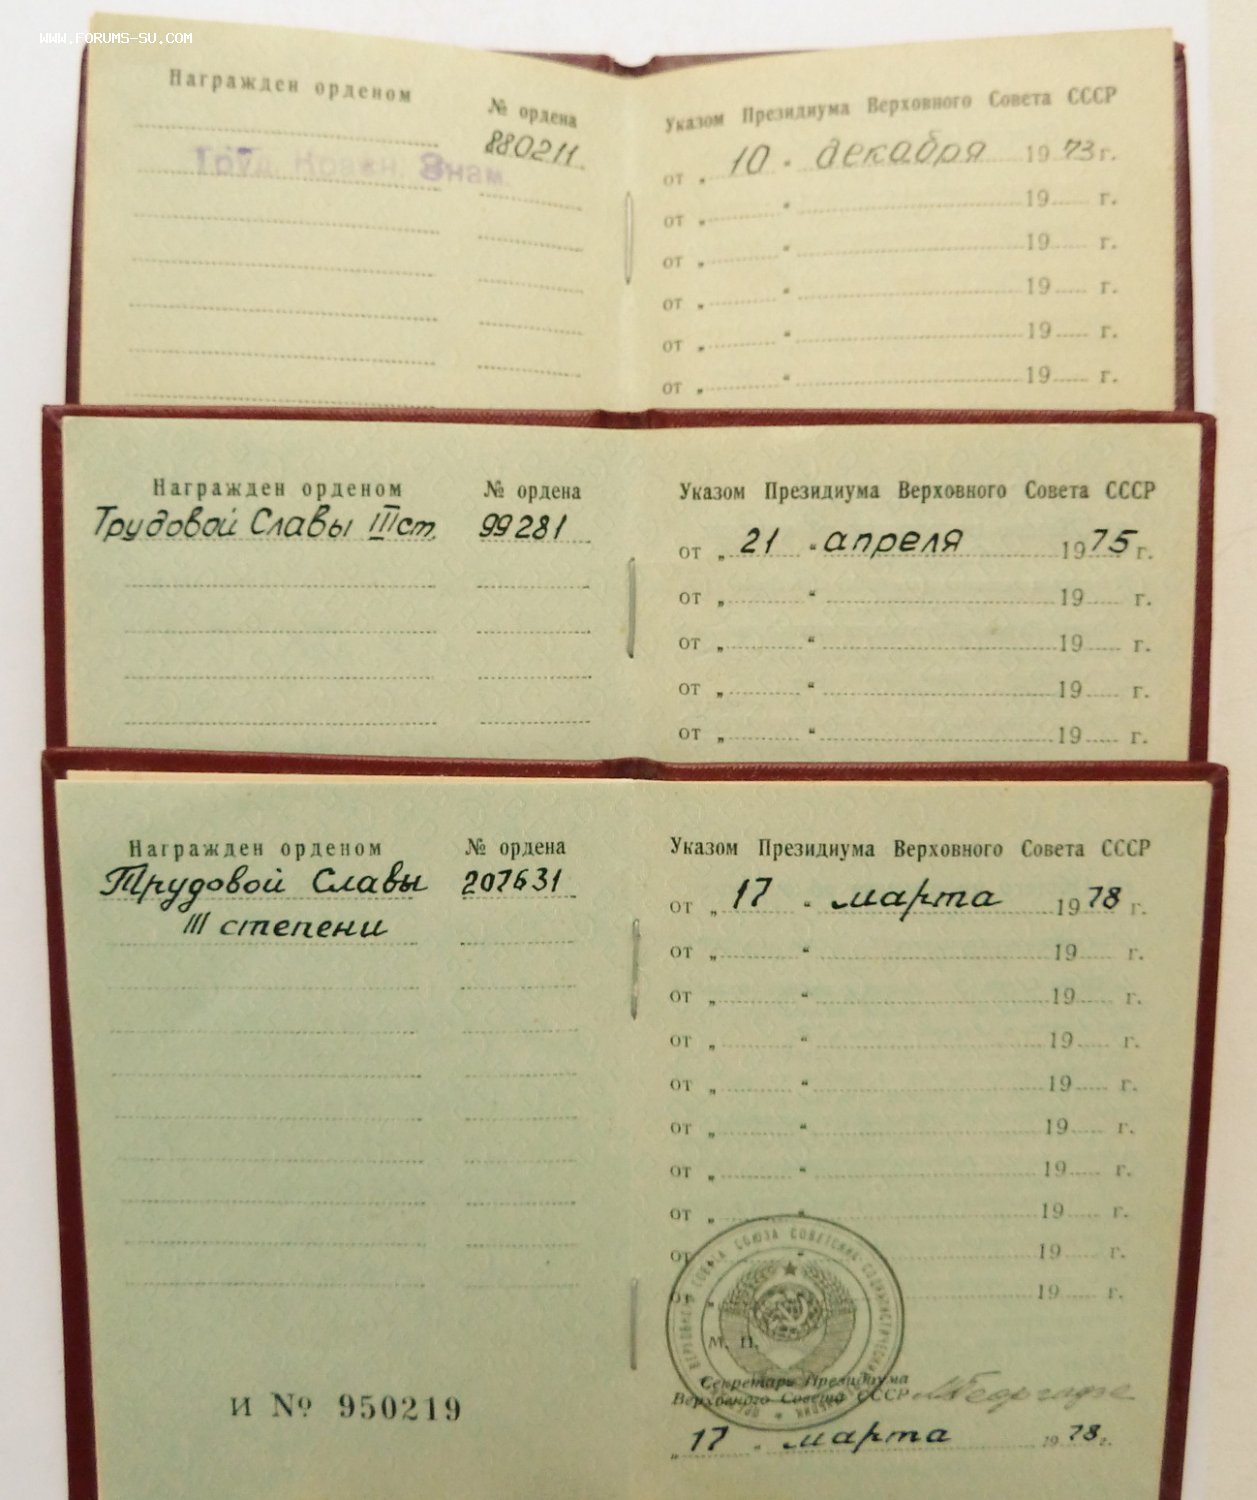 WWW.FORUMS-SU.COM
Награжден орденом № ордена
880211
Труд. Красн. Знам.
Указом Президиума Верховного Совета СССР
от „ 10 “ декабря 1973 г.
от „ “ 19 г.
от „ “ 19 г.
от „ “ 19 г.
от „ “ 19 г.
от „ “ 19 г.
Награжден орденом № ордена
Трудовой Славы III ст. 99281
Указом Президиума Верховного Совета СССР
от „ 21 “ апреля 1975 г.
от „ “ 19 г.
от „ “ 19 г.
от „ “ 19 г.
от „ “ 19 г.
Награжден орденом № ордена
Трудовой Славы 207631
III степени
И № 950219
Указом Президиума Верховного Совета СССР
от „ 17 “ марта 1978 г.
от „ “ 19 г.
от „ “ 19 г.
от „ “ 19 г.
от „ “ 19 г.
от „ “ 19 г.
от „ “ 19 г.
от „ “ 19 г.
от „ “ 19 г.
от „ “ 19 г.
М. П.
Секретарь Президиума
Верховного Совета СССР
„ 17 “ марта 1978 г.
СОВЕТА СОЮЗА СОВЕТСКИХ СОЦИАЛИСТИЧЕСКИХ